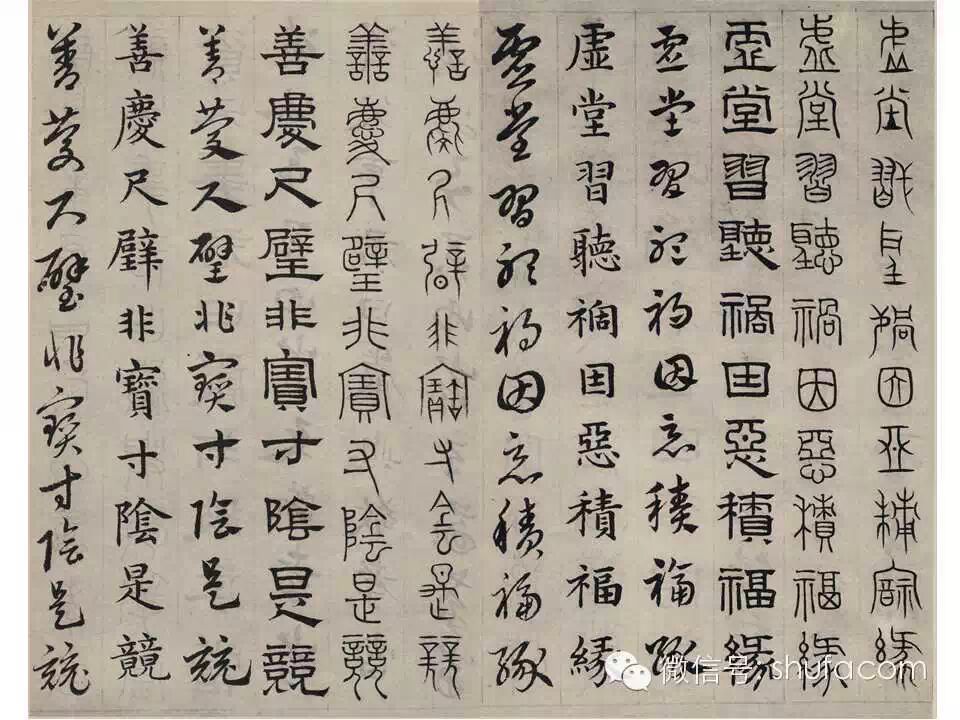 虛堂習聽禍因惡積福緣
虛堂習聽禍因惡積福緣
虛堂習聽禍因惡積福緣
虛堂習聽禍因惡積福緣
虛堂習聽禍因惡積福緣
虛堂習聽禍因惡積福緣
善慶尺璧非寶寸陰是競
善慶尺璧非寶寸陰是競
善慶尺璧非寶寸陰是競
善慶尺璧非寶寸陰是競
善慶尺璧非寶寸陰是競
善慶尺璧非寶寸陰是競
微信号: shufacom